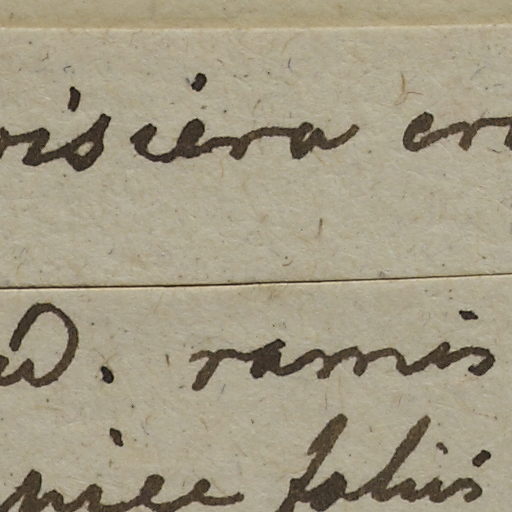 isiera er
D. ramis
niee foliis